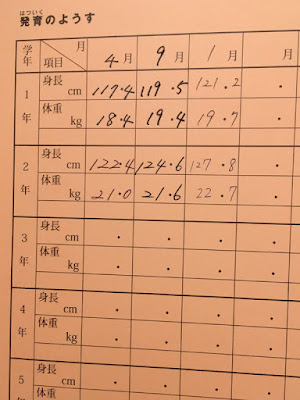 はついく
発育のようす
学年 項目 月 4月 9月 1月 月
1年 身長 cm 117.4 119.5 121.2 .
体重 kg 18.4 19.4 19.7 .
2年 身長 cm 122.4 124.6 127.8 .
体重 kg 21.0 21.6 22.7 .
3年 身長 cm . . . .
体重 kg . . . .
4年 身長 cm . . . .
体重 kg . . . .
5 身長 cm . . . .
体重